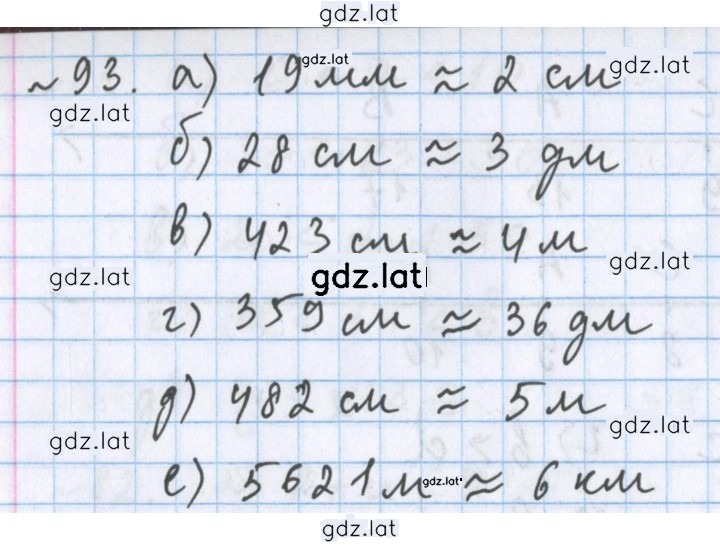 gdz.lat
~93. а) 19 мм ≈ 2 см
gdz.lat
gdz.lat
gdz.lat
б) 28 см ≈ 3 дм
в) 423 см ≈ 4 м
gdz.lat
gdz.lat
gdz.lat
г) 359 см ≈ 36 дм
д) 482 см ≈ 5 м
gdz.lat
gdz.lat
е) 5621 м ≈ 6 км
gdz.lat
gdz.lat